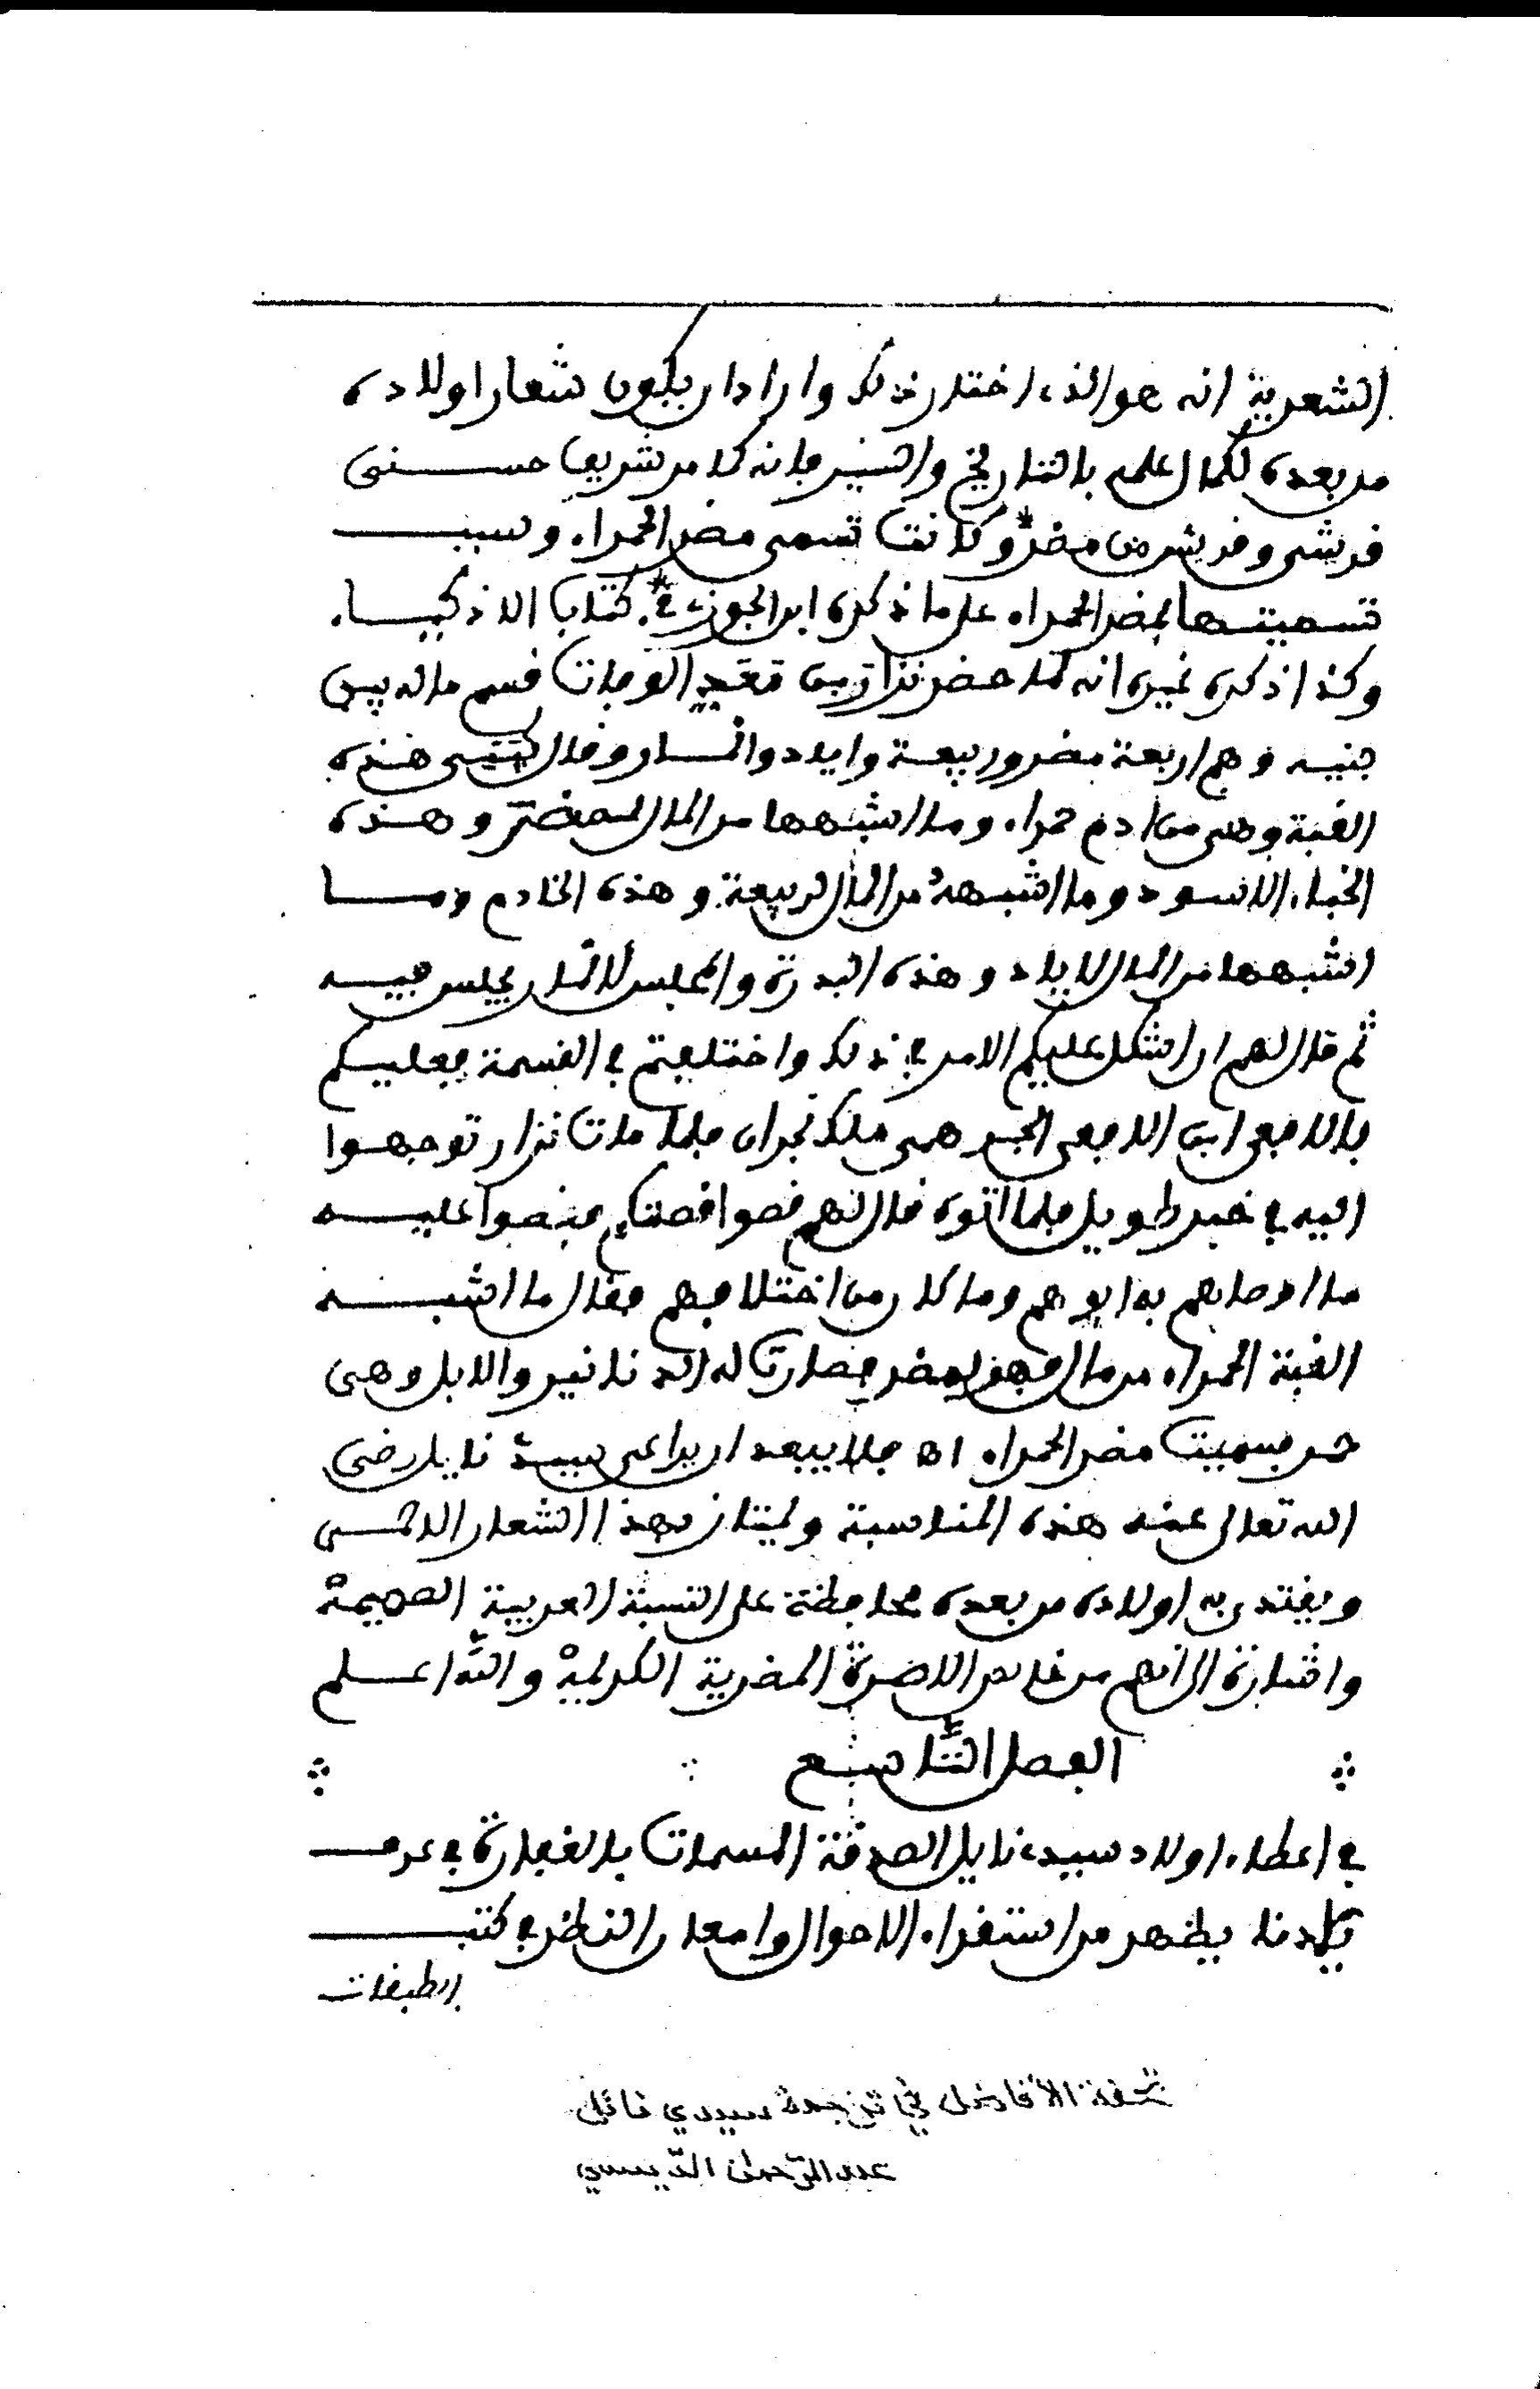 الشعرية انه هو الذي اختار ذلك واراد ان يكون شعار اولاده
من بعده لكمال علمه بالتاريخ والسير فانه كان من شريف حسني
قرشي وقريش من مضر وكانت تسمى مضر الحمراء وسبب
تسميتها بمضر الحمراء على ما ذكره ابن الجوزي في كتاب الاذكياء
وكذا ذكره غيره انه لما حضر نزار بن معد الوفاة قسم ماله بين
بنيه وهم اربعة مضر وربيعة واياد وانمار وقال يا بني هذه
القبة وهي من ادم حمراء وما اشبهها من المال لمضر وهذه
الخباء الاسود وما اشبهه من المال لربيعة وهذه الخادم وما
اشبهها من المال لاياد وهذه البدرة والمجلس لانمار يجلس فيه
ثم قال لهم ان اشكل عليكم الامر في ذلك واختلفتم في القسمة فعليكم
بالافعى ابن الافعى الجرهمي ملك نجران فلما مات نزار توجهوا
اليه في خبر طويل فلما اتوه قال لهم قصوا قصتكم فقصوا عليه
ما اوصاهم به ابوهم وما كان من اختلافهم فقال ما اشبه
القبة الحمراء من مال فهو لمضر فصارت له الدنانير والابل وهي
حمر فسميت مضر الحمراء اه فلا يبعد ان يراعي سيدي نايل رضي
الله تعالى عنه هذه المناسبة وليمتاز بهذا الشعار الاحمر
ويقتدي به اولاده من بعده محافظة على النسبة العربية الصميمة
واشارة الى انهم من خالص الاضرة المضرية الكريمة والله اعلم
الفصل التاسع
في اعطاء اولاد سيدي نايل الصدقة المسمات بالغفارة في عرف
بلادنا يظهر من استقراء الاحوال وامعان النظر في كتب
الطبقات
تحفة الأفاضل في ترجمة سيدي نائل
عبد الرحمان الديسي